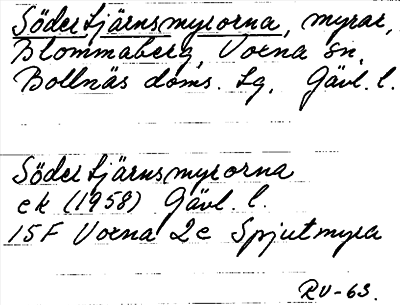 Södertjärnsmyrorna, myrar,
Blommaberg, Voxna sn,
Bollnäs doms. lg, Gävl. l.
Södertjärnsmyrorna
ek (1958) Gävl. l.
15F Voxna 2c Spjutmyra
RU-63.